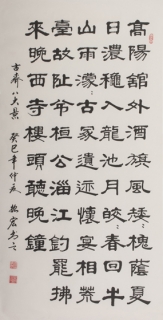 高陽舘外酒旗風矮槐蔭夏
日濃〻穐入龍池月皎〻春回牛
山雨濛〻古冢遺迹懷宴相荒
臺故阯弔桓公淄江釣罷
来晚西寺樓頭聽晚鐘
古齊八大景 癸巳年仲夏